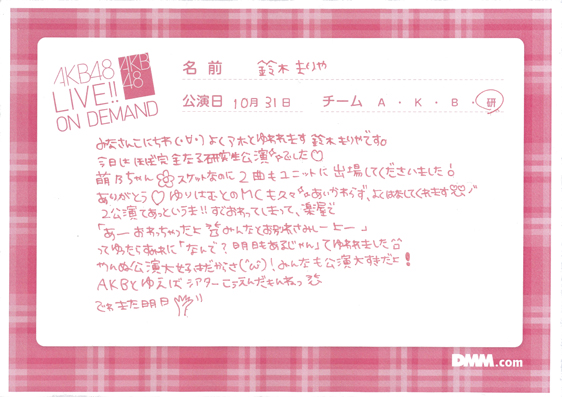 AKB48
LIVE!!
ON DEMAND
AKB
48
名前 鈴木まりや
公演日 10月31日 チーム A・K・B・研
みなさんこにちわ(・∀・)よくアホとゆわれます鈴木まりやです。
今日はほぼ完全なる研究生公演でした♡
萌乃ちゃん スケットなのに2曲もユニットに出場してくださいました!
ありがとう♡ゆりはむとのMCも久々 あいかわらず、よくはなしてくれます
2公演てあっというま!!すぐおわってしまって、楽屋で
「あーおわっちゃったよ みんなとお別れさみしーよー」
ってゆったらすぁぉに「なんで?明日もあるじゃん」てゆわれました
やんぬ公演大好きだからさ(^ω^)!みんなも公演大すきだよ!
AKBとゆえばシアターこうえんだもんねっ
でわまた明日
DMM.com